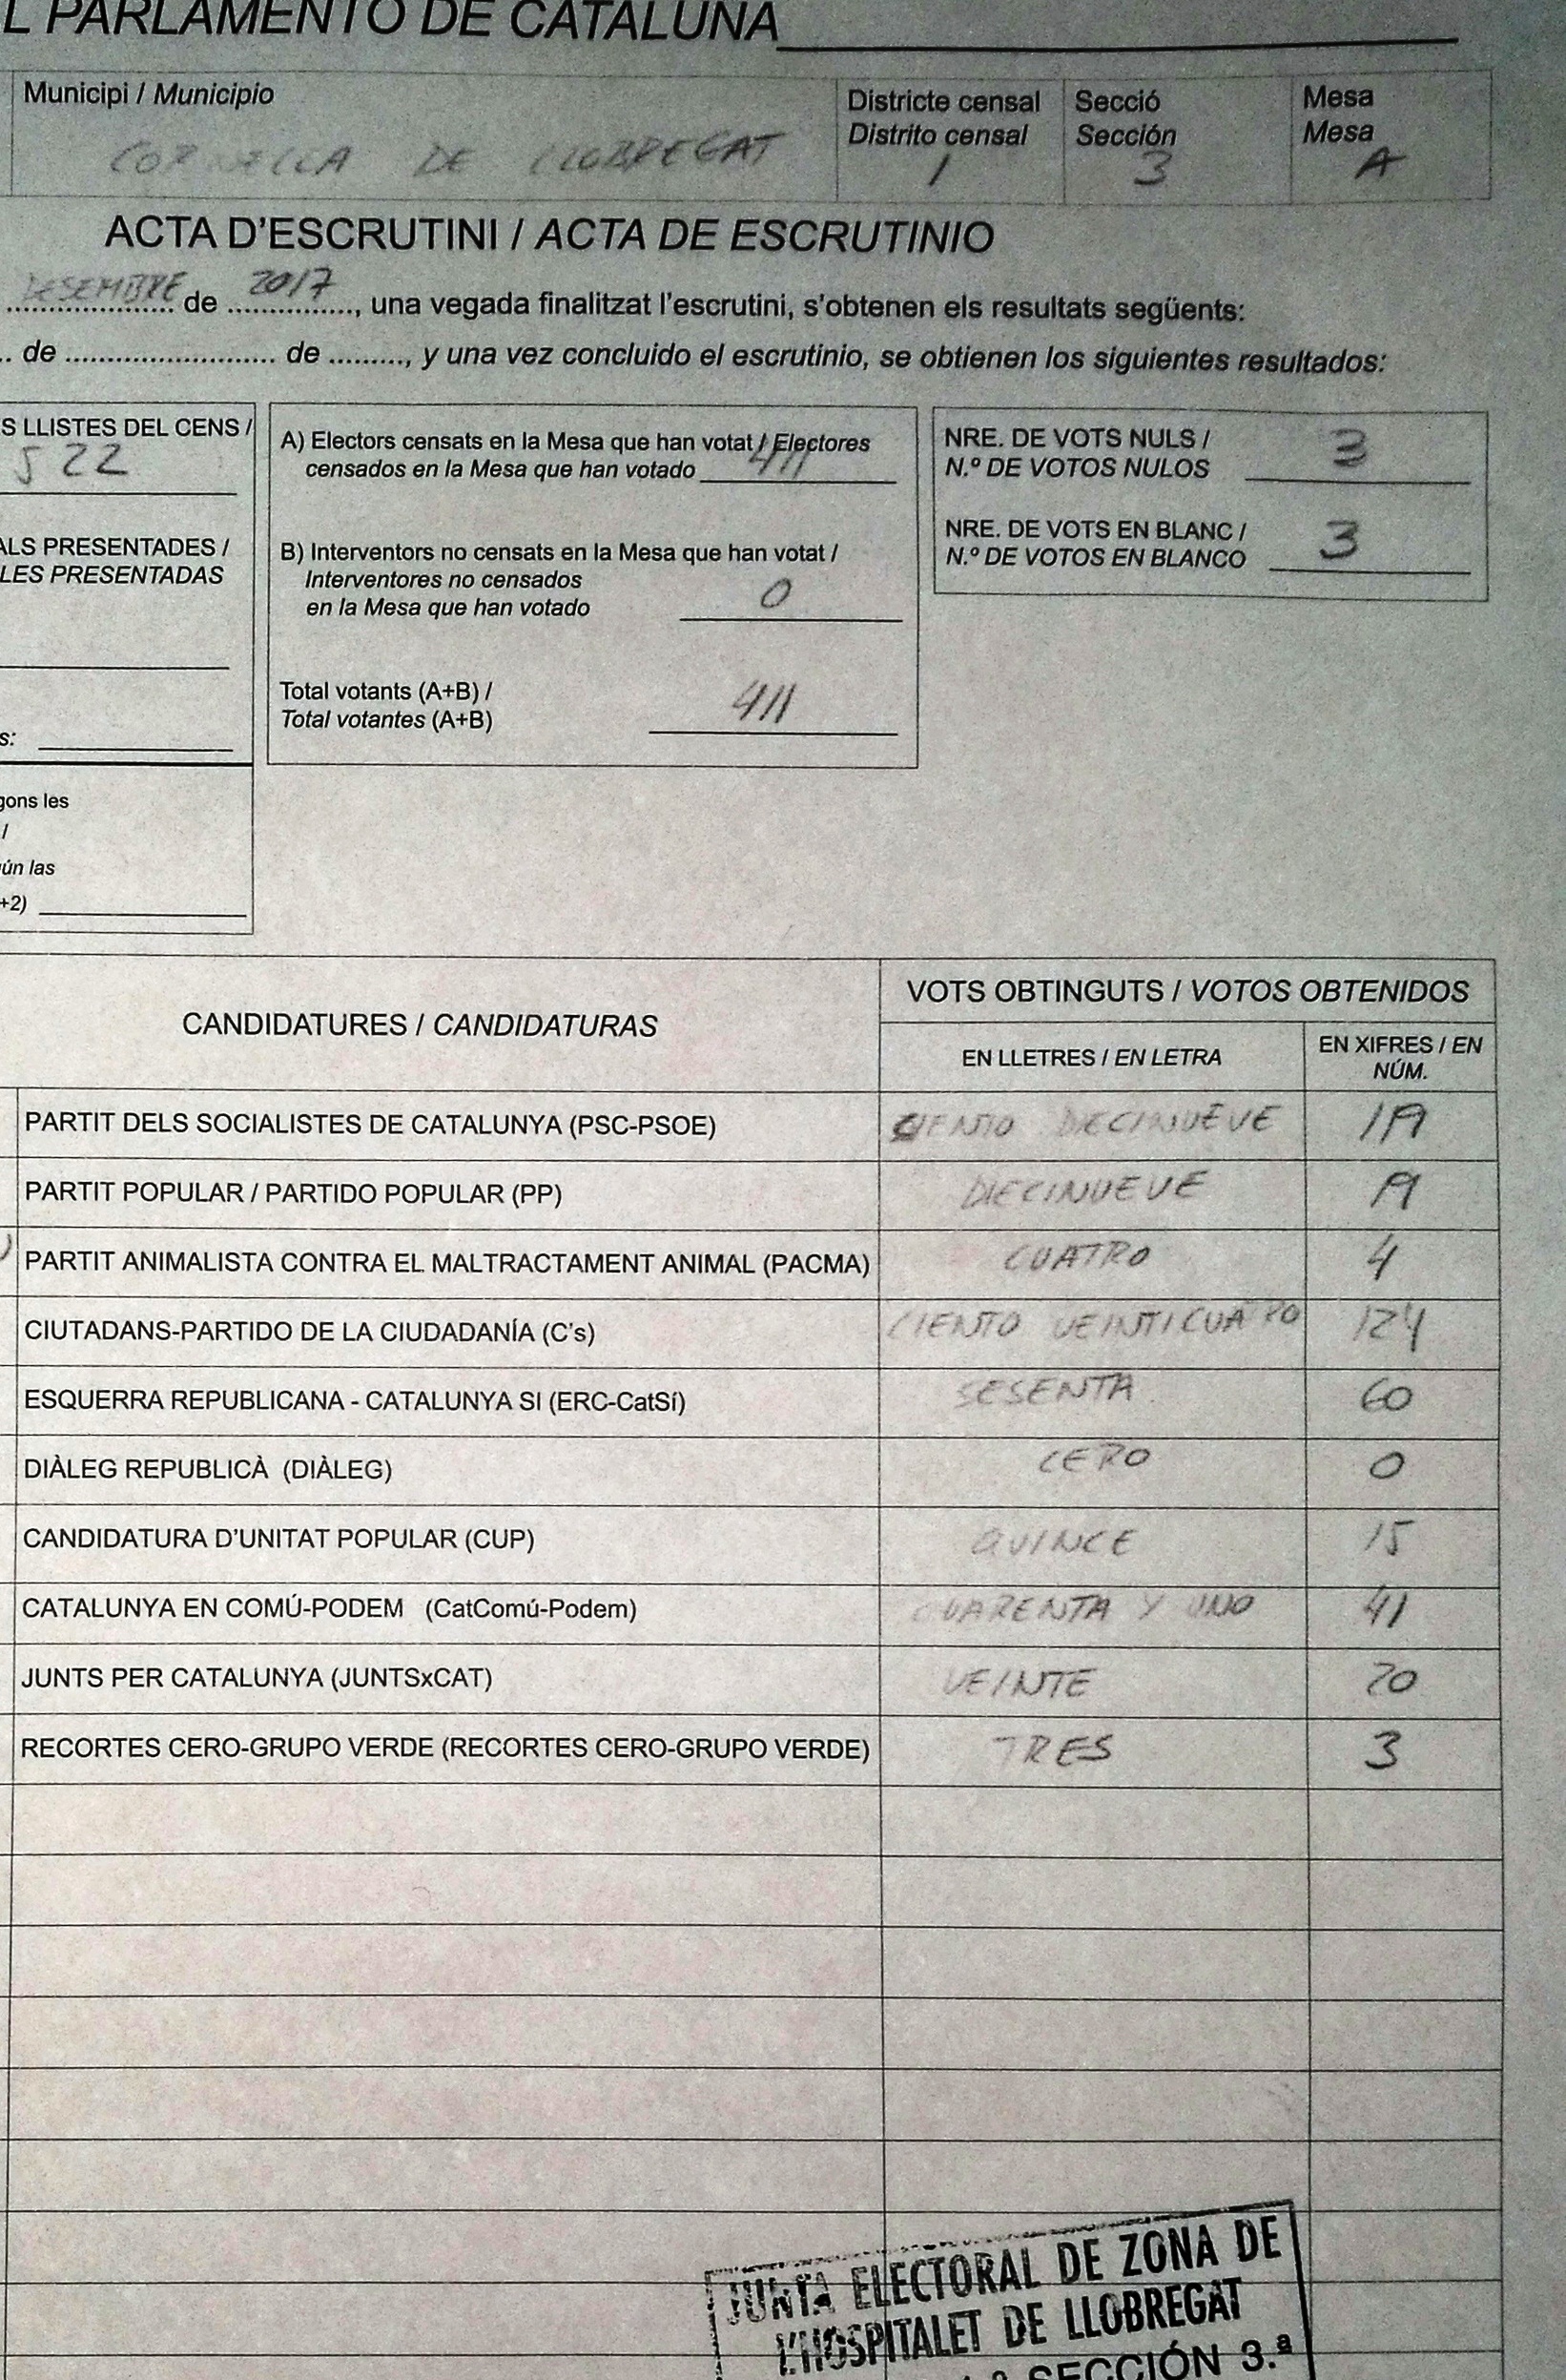 L PARLAMENTO DE CATALUÑA
Municipi / Municipio
Districte censal
Distrito censal
Secció
Sección
Mesa
Mesa
CORNELLA DE LLOBREGAT
1
3
A
ACTA D'ESCRUTINI / ACTA DE ESCRUTINIO
DESEMBRE de 2017, una vegada finalitzat l'escrutini, s'obtenen els resultats següents:
.. de ........................ de ........., y una vez concluido el escrutinio, se obtienen los siguientes resultados:
S LLISTES DEL CENS /
522
ALS PRESENTADES /
LES PRESENTADAS
s:
gons les
/
ún las
+2)
A) Electors censats en la Mesa que han votat / Electores
censados en la Mesa que han votado 411
B) Interventors no censats en la Mesa que han votat /
Interventores no censados
en la Mesa que han votado 0
Total votants (A+B) /
Total votantes (A+B) 411
NRE. DE VOTS NULS /
N.º DE VOTOS NULOS 3
NRE. DE VOTS EN BLANC /
N.º DE VOTOS EN BLANCO 3
CANDIDATURES / CANDIDATURAS
VOTS OBTINGUTS / VOTOS OBTENIDOS
EN LLETRES / EN LETRA
EN XIFRES / EN
NÚM.
PARTIT DELS SOCIALISTES DE CATALUNYA (PSC-PSOE) CIENTO DECINUEVE 119
PARTIT POPULAR / PARTIDO POPULAR (PP) DIECINUEVE 19
PARTIT ANIMALISTA CONTRA EL MALTRACTAMENT ANIMAL (PACMA) CUATRO 4
CIUTADANS-PARTIDO DE LA CIUDADANÍA (C's) CIENTO VEINTICUATRO 124
ESQUERRA REPUBLICANA - CATALUNYA SI (ERC-CatSí) SESENTA 60
DIÀLEG REPUBLICÀ (DIÀLEG) CERO 0
CANDIDATURA D'UNITAT POPULAR (CUP) QUINCE 15
CATALUNYA EN COMÚ-PODEM (CatComú-Podem) CUARENTA Y UNO 41
JUNTS PER CATALUNYA (JUNTSxCAT) VEINTE 20
RECORTES CERO-GRUPO VERDE (RECORTES CERO-GRUPO VERDE) TRES 3
JUNTA ELECTORAL DE ZONA DE
L'HOSPITALET DE LLOBREGAT
SECCIÓN 3.ª